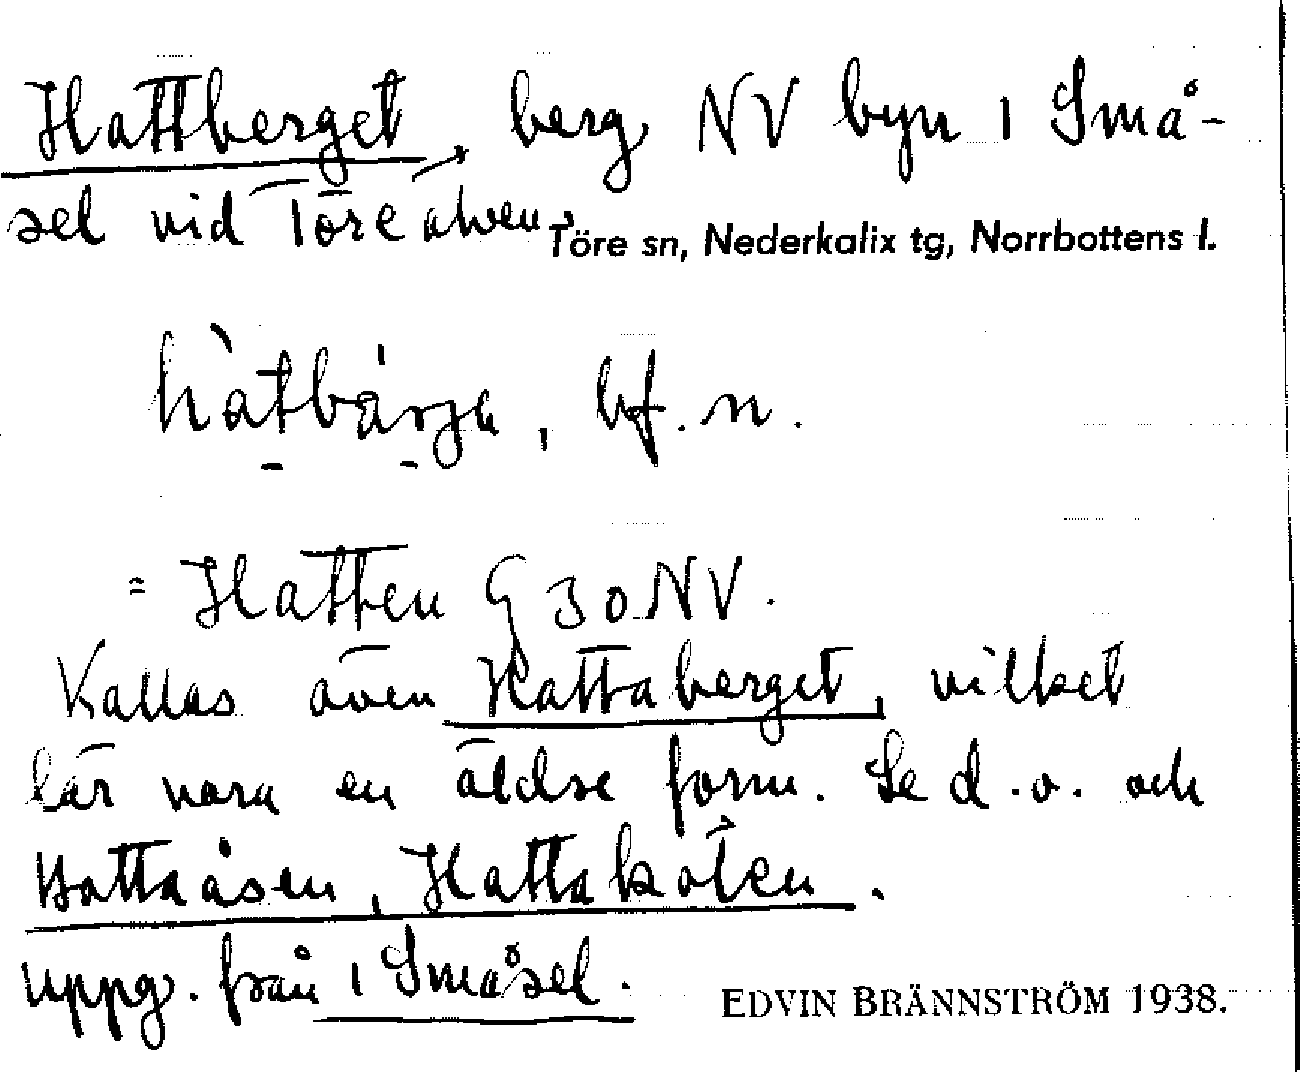 Hattberget, berg NV byn i Små-
sel vid Töreälven,
Töre sn, Nederkalix tg, Norrbottens l.
hàtbárja, bf. n.
= Hatten G 30 NV.
Kallas även Hattaberget, vilket
lär vara en äldre form. Se d.o. och
Hattaåsen, Hattakölen.
Uppg. från i Småsel.
EDVIN BRÄNNSTRÖM 1938.